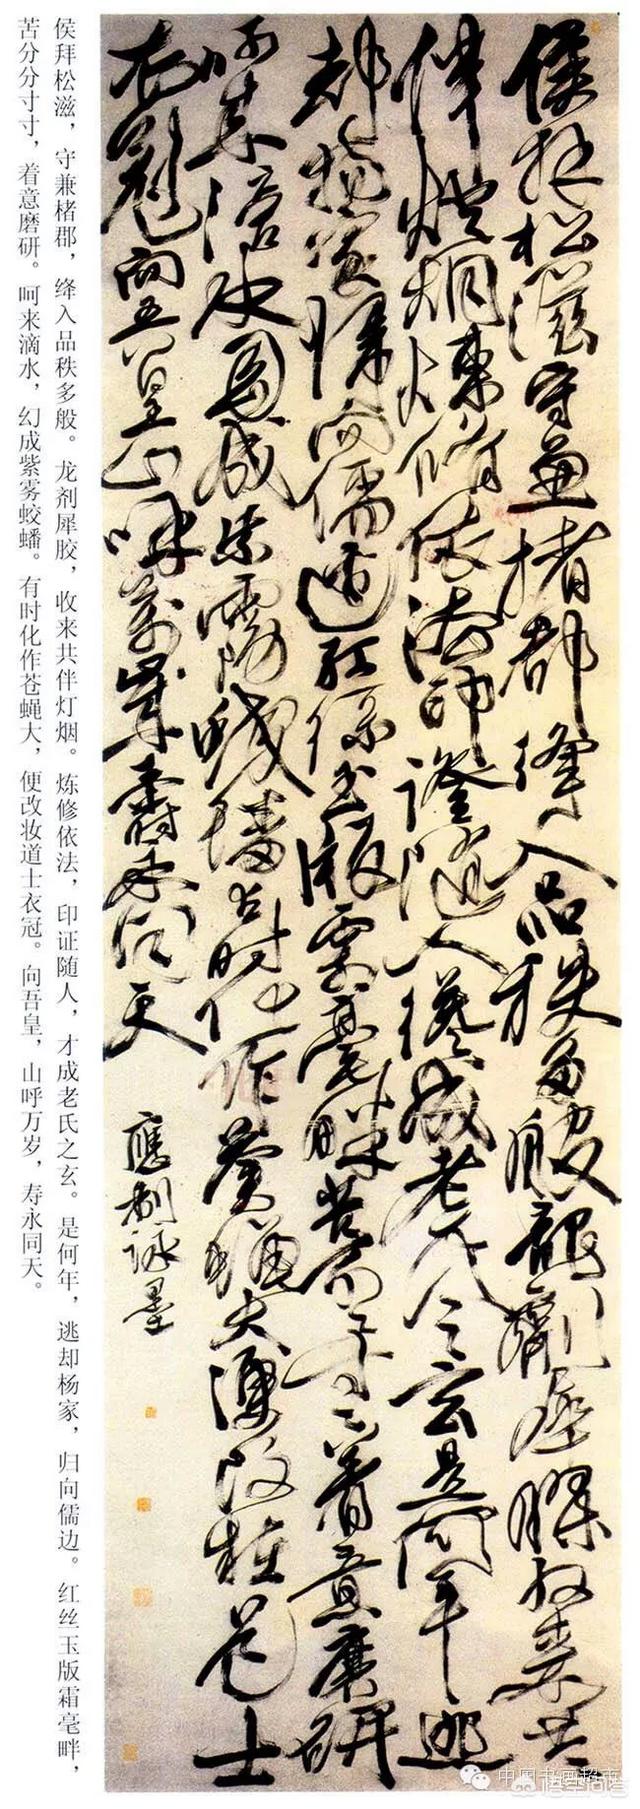 侯拜松滋守兼楮郡絳入品秩多般龍劑犀膠收來共
伴燈烟煉修依法印證隨人纔成老氏之玄是何年逃
却楊家歸向儒邊紅絲玉版霜毫畔苦分分寸寸着意磨研
呵來滴水幻成紫霧蛟蟠有時化作蒼蠅大便改粧道士
衣冠向吾皇山呼萬歲壽永同天
應制詠墨
侯拜松滋，守兼楮郡，绛入品秩多般。龙剂犀胶，收来共伴灯烟。炼修依法，印证随人，才成老氏之玄。是何年，逃却杨家，归向儒边。红丝玉版霜毫畔，
苦分分寸寸，着意磨研。呵来滴水，幻成紫雾蛟蟠。有时化作苍蝇大，便改妆道士衣冠。向吾皇，山呼万岁，寿永同天。
中国书画超市
悟空问答